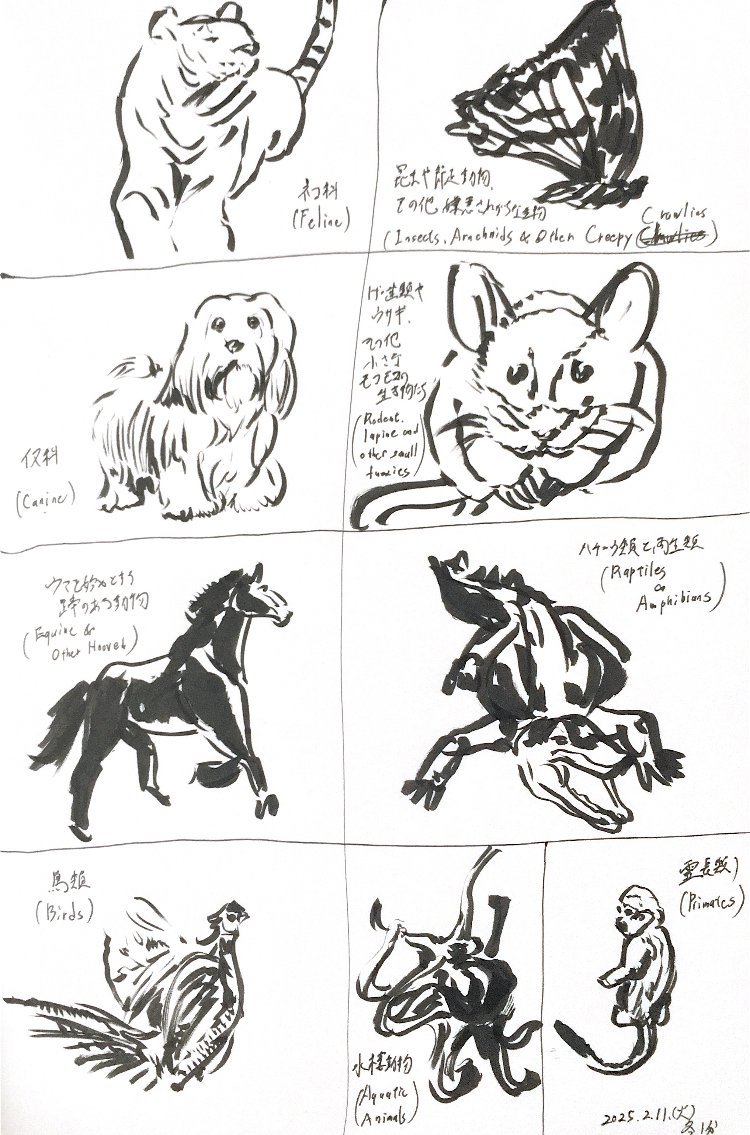 ネコ科
(Feline)
昆虫や節足動物、
その他嫌悪されがちな生物
Crawlies
(Insects, Arachnids & Other Creepy )
イヌ科
(Canine)
げっ歯類や
ウサギ、
その他
小さな
モフモフの
生き物たち
(Rodent,
lapine and
other small
furries)
ウマを始めとする
蹄のある動物
(Equine &
Other Hooved)
ハチュウ類と両生類
(Reptiles
Amphibians)
鳥類
(Birds)
水棲動物
(Aquatic
Animals)
霊長類
(Primates)
2025.2.11.(火)